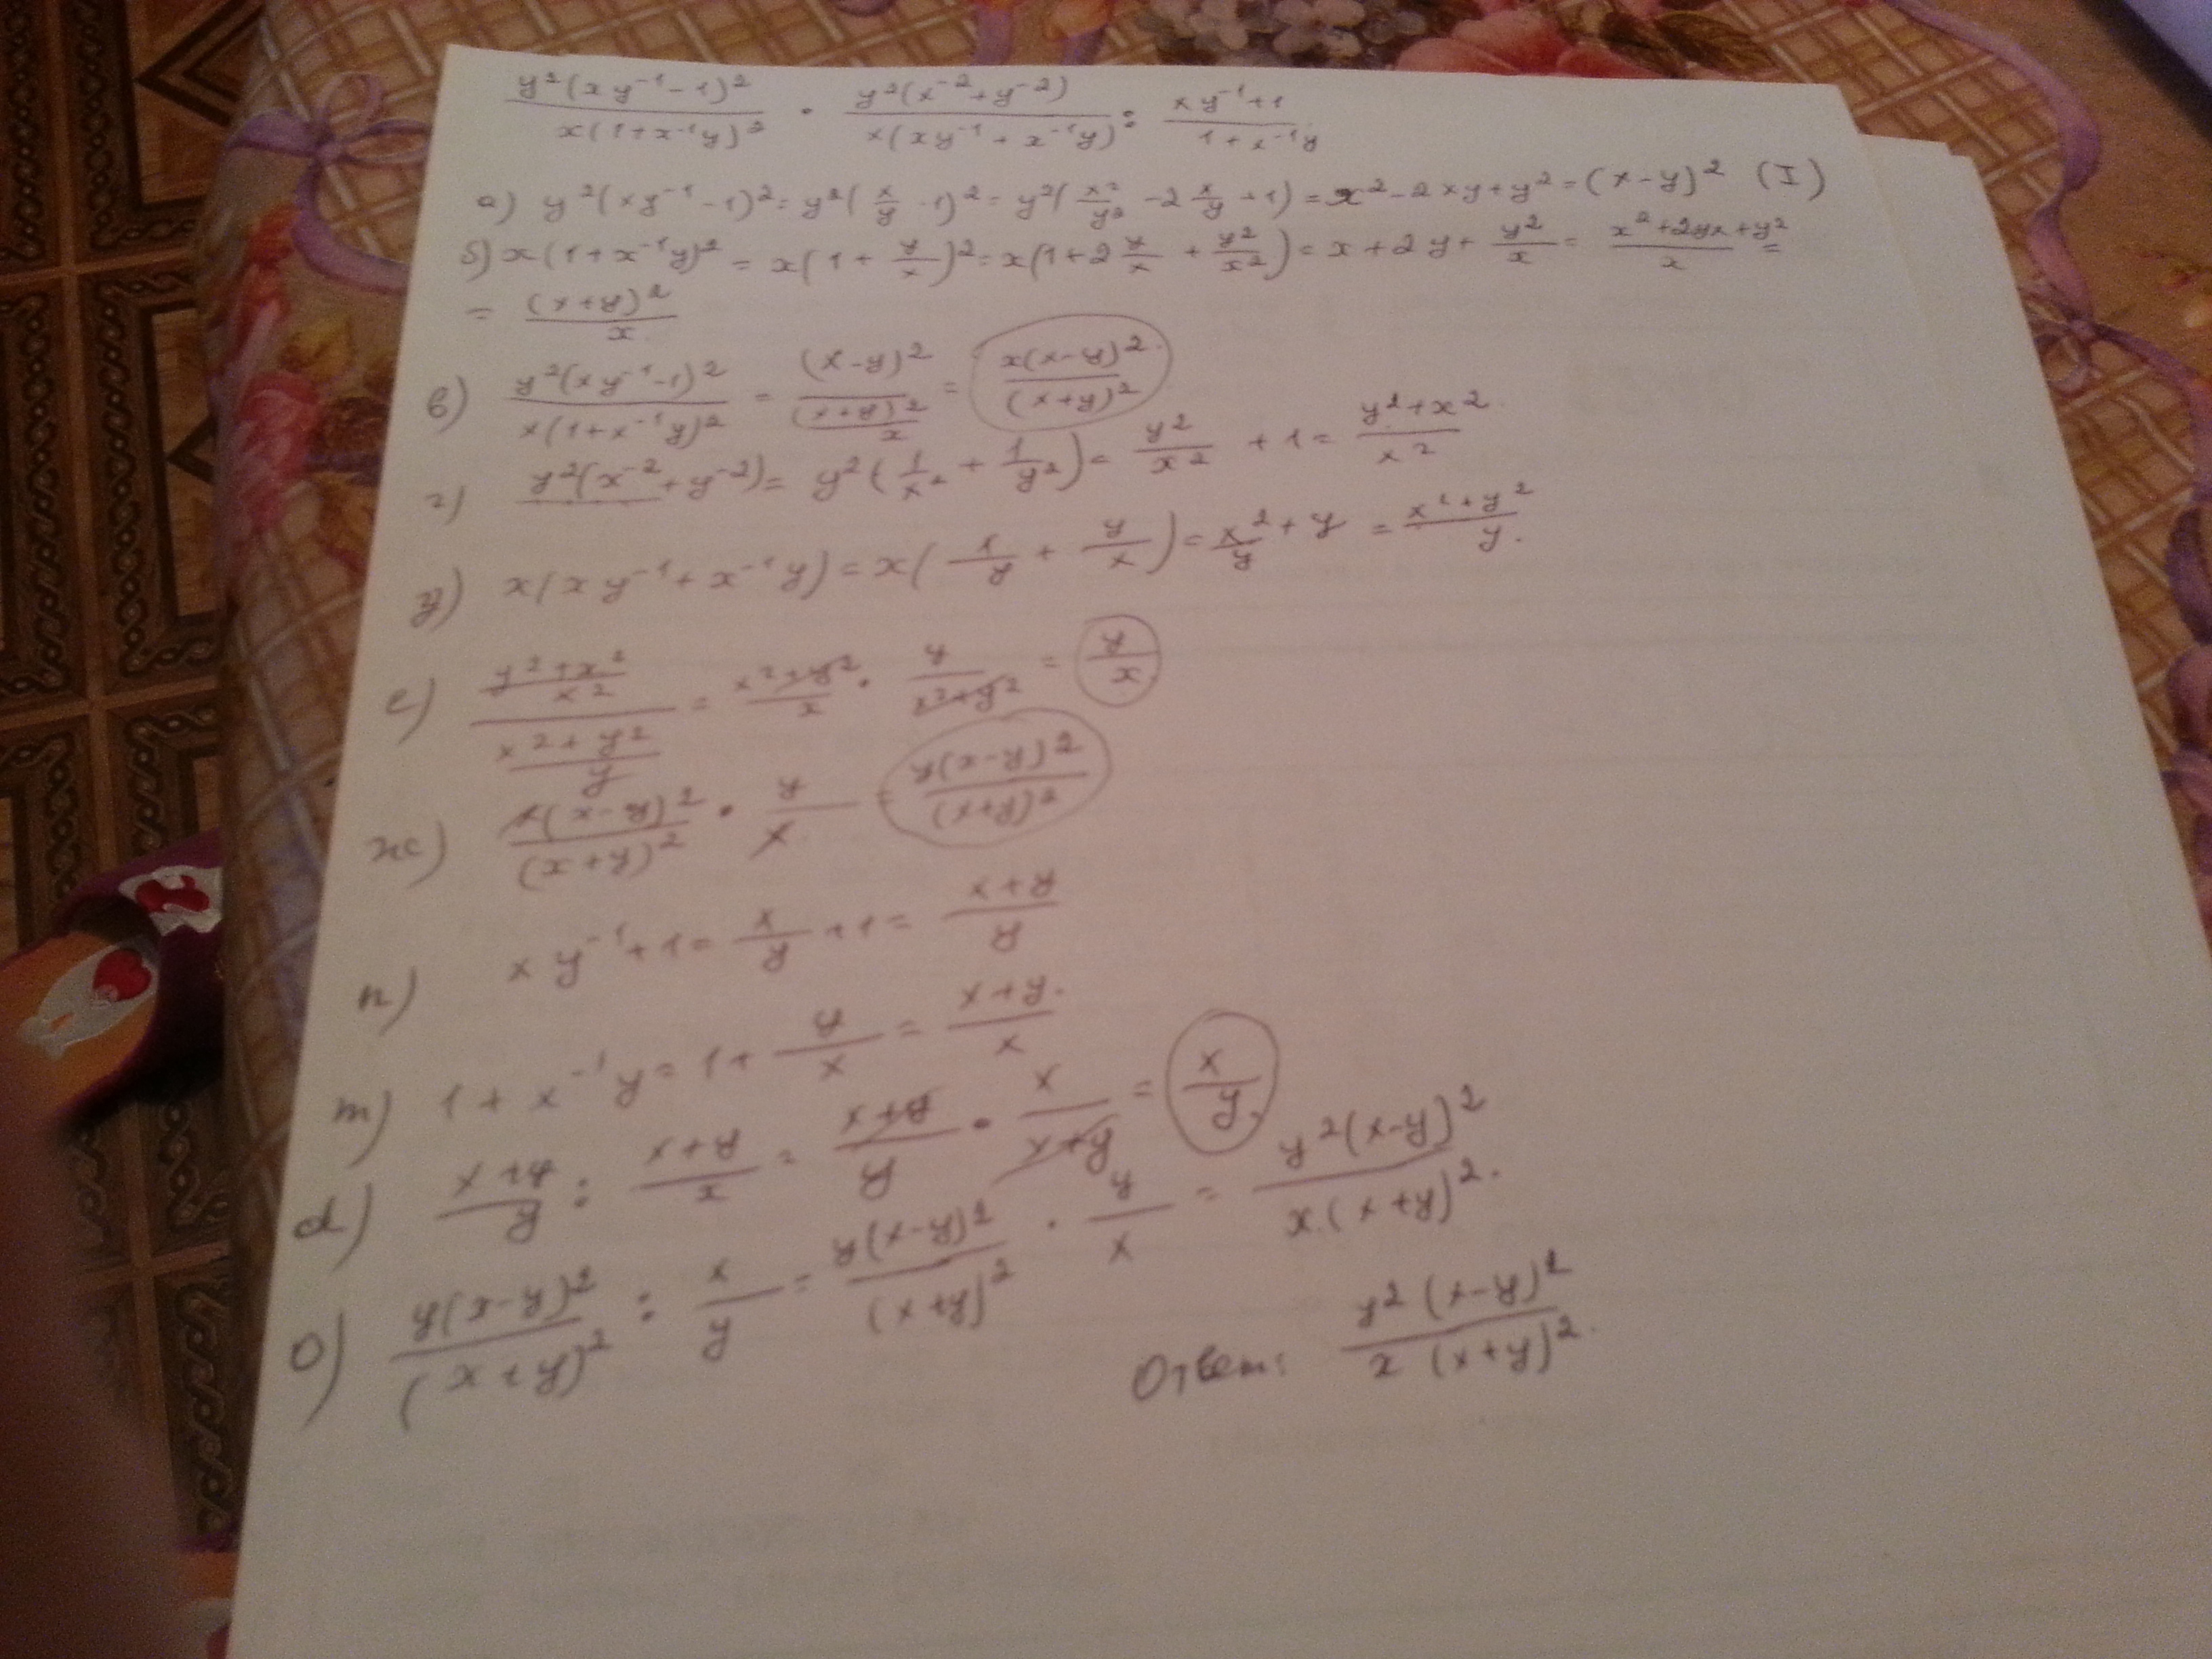 y²(xy⁻¹-1)² / x(1+x⁻¹y)² · y²(x⁻²+y⁻²) / x(xy⁻¹+x⁻¹y) : xy⁻¹+1 / 1+x⁻¹y
а) y²(xy⁻¹-1)² = y²(x/y -1)² = y²(x²/y² -2 x/y +1) = x²-2xy+y² = (x-y)² (I)
б) x(1+x⁻¹y)² = x(1+ y/x)² = x(1+2 y/x + y²/x²) = x+2y+ y²/x = x²+2yx+y² / x =
= (x+y)² / x
в) y²(xy⁻¹-1)² / x(1+x⁻¹y)² = (x-y)² / (x+y)²/x = x(x-y)² / (x+y)²
г) y²(x⁻²+y⁻²) = y²(1/x² + 1/y²) = y²/x² +1 = y²+x² / x²
д) x(xy⁻¹+x⁻¹y) = x(x/y + y/x) = x²/y + y = x²+y² / y.
е) y²+x²/x² / x²+y²/y = x²+y²/x · y/x²+y² = y/x
ж) x(x-y)² / (x+y)² · y/x = y(x-y)² / (x+y)²
п) xy⁻¹+1 = x/y +1 = x+y / y
m) 1+x⁻¹y = 1+ y/x = x+y. / x
d) x+y / y : x+y / x = x+y / y · x / x+y = x/y
о) y(x-y)² / (x+y)² : x/y = y(x-y)² / (x+y)² · y/x = y²(x-y)² / x.(x+y)².
Ответ: y²(x-y)² / x(x+y)².